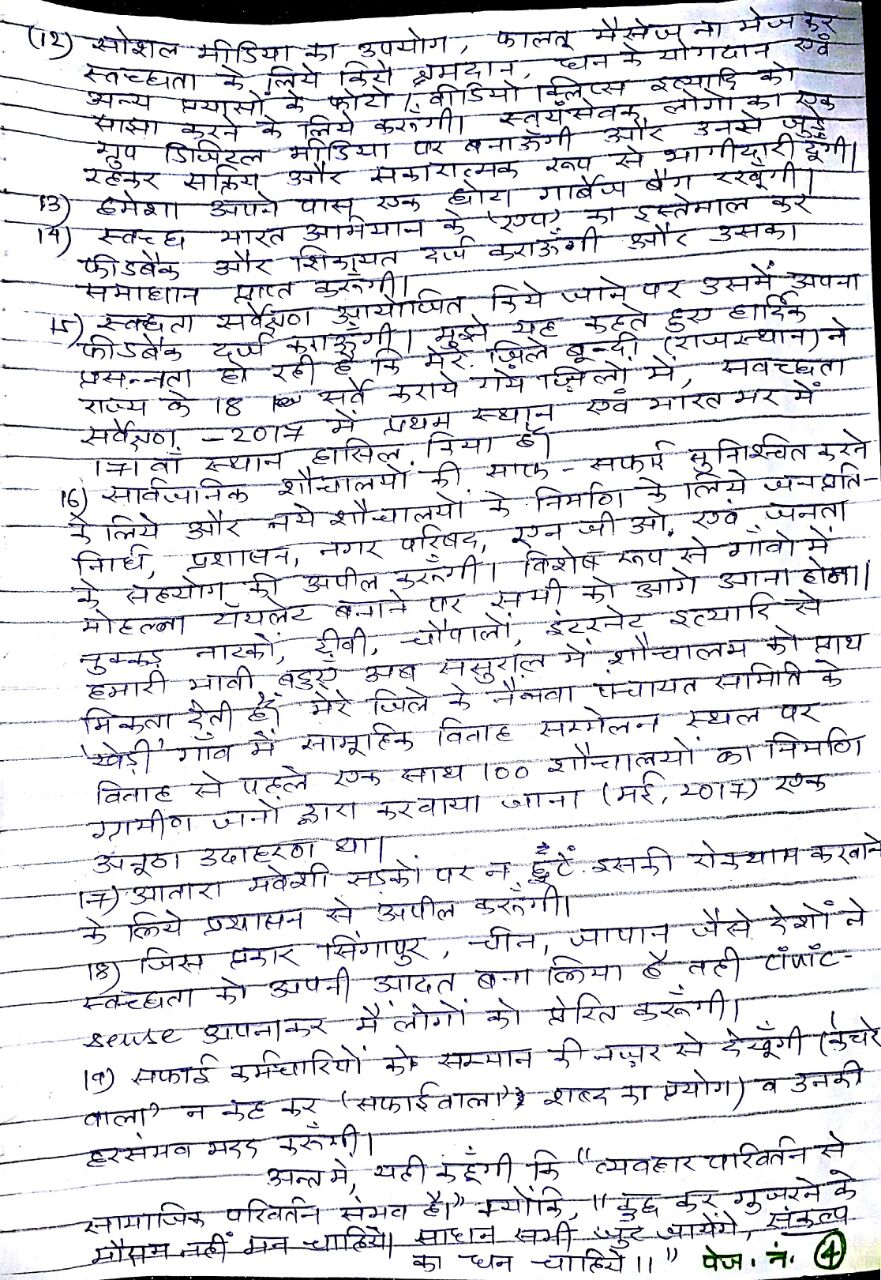 (12) सोशल मीडिया का उपयोग, फालतू मैसेज ना भेज कर
स्वच्छता के लिये किये श्रमदान, धन के योगदान एवं
अन्य प्रयासों के फोटो / वीडियो क्लिप्स इत्यादि को
साझा करने के लिये करूँगी। स्वयंसेवक लोगों का एक
ग्रुप डिजिटल मीडिया पर बनाऊँगी और उनसे जुड़े
रहकर सक्रिय और सकारात्मक रूप से भागीदारी दूँगी।
13) हमेशा अपने पास एक छोटा गार्बेज बैग रखूँगी।
14) स्वच्छ भारत अभियान के 'एप' का इस्तेमाल कर
फीडबैक और शिकायत दर्ज कराऊँगी और उसका
समाधान प्राप्त करूँगी।
15) स्वच्छता सर्वेक्षण आयोजित किये जाने पर उसमें अपना
फीडबैक दर्ज कराऊँगी। मुझे यह कहते हुए हार्दिक
प्रसन्नता हो रही है कि मेरे ज़िले बून्दी (राजस्थान) ने
राज्य के 18 सर्वे कराये गये ज़िलों में, सवच्छता
सर्वेक्षण - 2017 में प्रथम स्थान एवं भारत भर में
171 वाँ स्थान हासिल किया है।
16) सार्वजानिक शौचालयों की साफ - सफाई सुनिश्चित करने
के लिये और नये शौचालयों के निर्माण के लिये जनप्रति-
निधि, प्रशासन, नगर परिषद, एन जी ओ. एवं जनता
के सहयोग की अपील करूँगी। विशेष रूप से गाँवो में
मोहल्ला टॉयलेट बनाने पर सभी को आगे आना होगा।
नुक्कड़ नाटकों, टीवी, चौपालों, इंटरनेट इत्यादि से
हमारी भावी बहुएँ अब ससुराल में शौचालय को प्राथ
मिकता देती हैं। मेरे जिले के नैनवा पंचायत समिति के
'खेड़ी' गाँव में सामूहिक विवाह सम्मेलन स्थल पर
विवाह से पहले एक साथ 100 शौचालयों का निर्माण
ग्रामीण जनों द्वारा करवाया जाना (मई, 2017) एक
अनूठा उदाहरण था।
17) आवारा मवेशी सड़कों पर न छूटें इसकी रोकथाम करवाने
के लिये प्रशासन से अपील करूँगी।
18) जिस प्रकार सिंगापुर, चीन, जापान जैसे देशों ने
स्वच्छता को अपनी आदत बना लिया है वही civic-
sense अपनाकर मैं लोगों को प्रेरित करूँगी।
19) सफाई कर्मचारियों को सम्मान की नज़र से देखूँगी ('कचरे
वाला' न कह कर 'सफाईवाला' शब्द का प्रयोग) व उनकी
हरसंभव मदद करूँगी।
अन्त में, यही कहूँगी कि "व्यवहार परिवर्तन से
सामाजिक परिवर्तन संभव है।" क्योंकि, "कुछ कर गुजरने के
मौसम नहीं मन चाहिये। साधन सभी जुट जायेंगे, संकल्प
का धन चाहिये।।" पेज. नं. 4